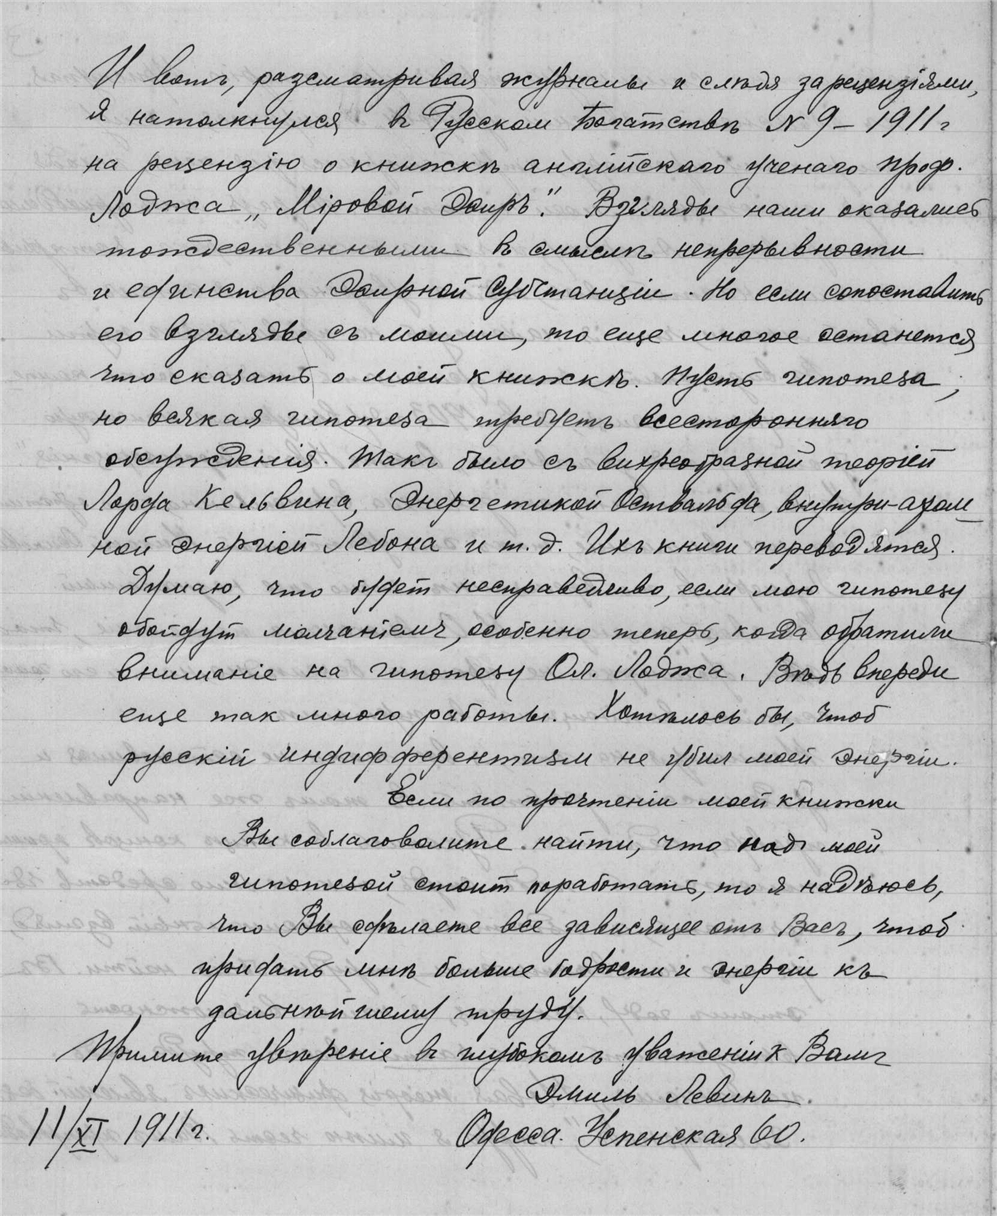 И вотъ, разсматривая журналы и слѣдя за рецензіями,
я натолкнулся в Русском Богатствѣ № 9 – 1911 г
на рецензію о книжкѣ англійскаго ученаго проф.
Лоджа „Міровой Эѳиръ". Взгляды наши оказались
тождественными в смыслѣ непрерывности
и единства Эѳирной субстанціи. Но если сопоставить
его взгляды съ моими, то еще многое останется
что сказать о моей книжкѣ. Пусть гипотеза;
но всякая гипотеза требуетъ всесторонняго
обсужденія. Такъ было съ вихреобразной теоріей
Лорда Кельвина, Энергетикой Оствальда, внутри-атом-
ной энергіей Лебона и т. д. Ихъ книги переводятся.
Думаю, что будет несправедливо, если мою гипотезу
обойдут молчаніемъ, особенно теперь, когда обратили
вниманіе на гипотезу Ол. Лоджа. Вѣдь впереди
еще так много работы. Хотѣлось бы, чтоб
русскій индифферентизм не убил моей энергіи.
Если по прочтеніи моей книжки
Вы соблаговолите найти, что надъ моей
гипотезой стоит поработать, то я надѣюсь,
что Вы сдѣлаете все зависящее отъ Васъ, чтоб
придать мнѣ больше бодрости и энергіи къ
дальнѣйшему труду.
Примите увѣреніе в глубокомъ уваженіи к Вамъ
Эмиль Левинъ.
11/XI 1911 г. Одесса. Успенская 60.